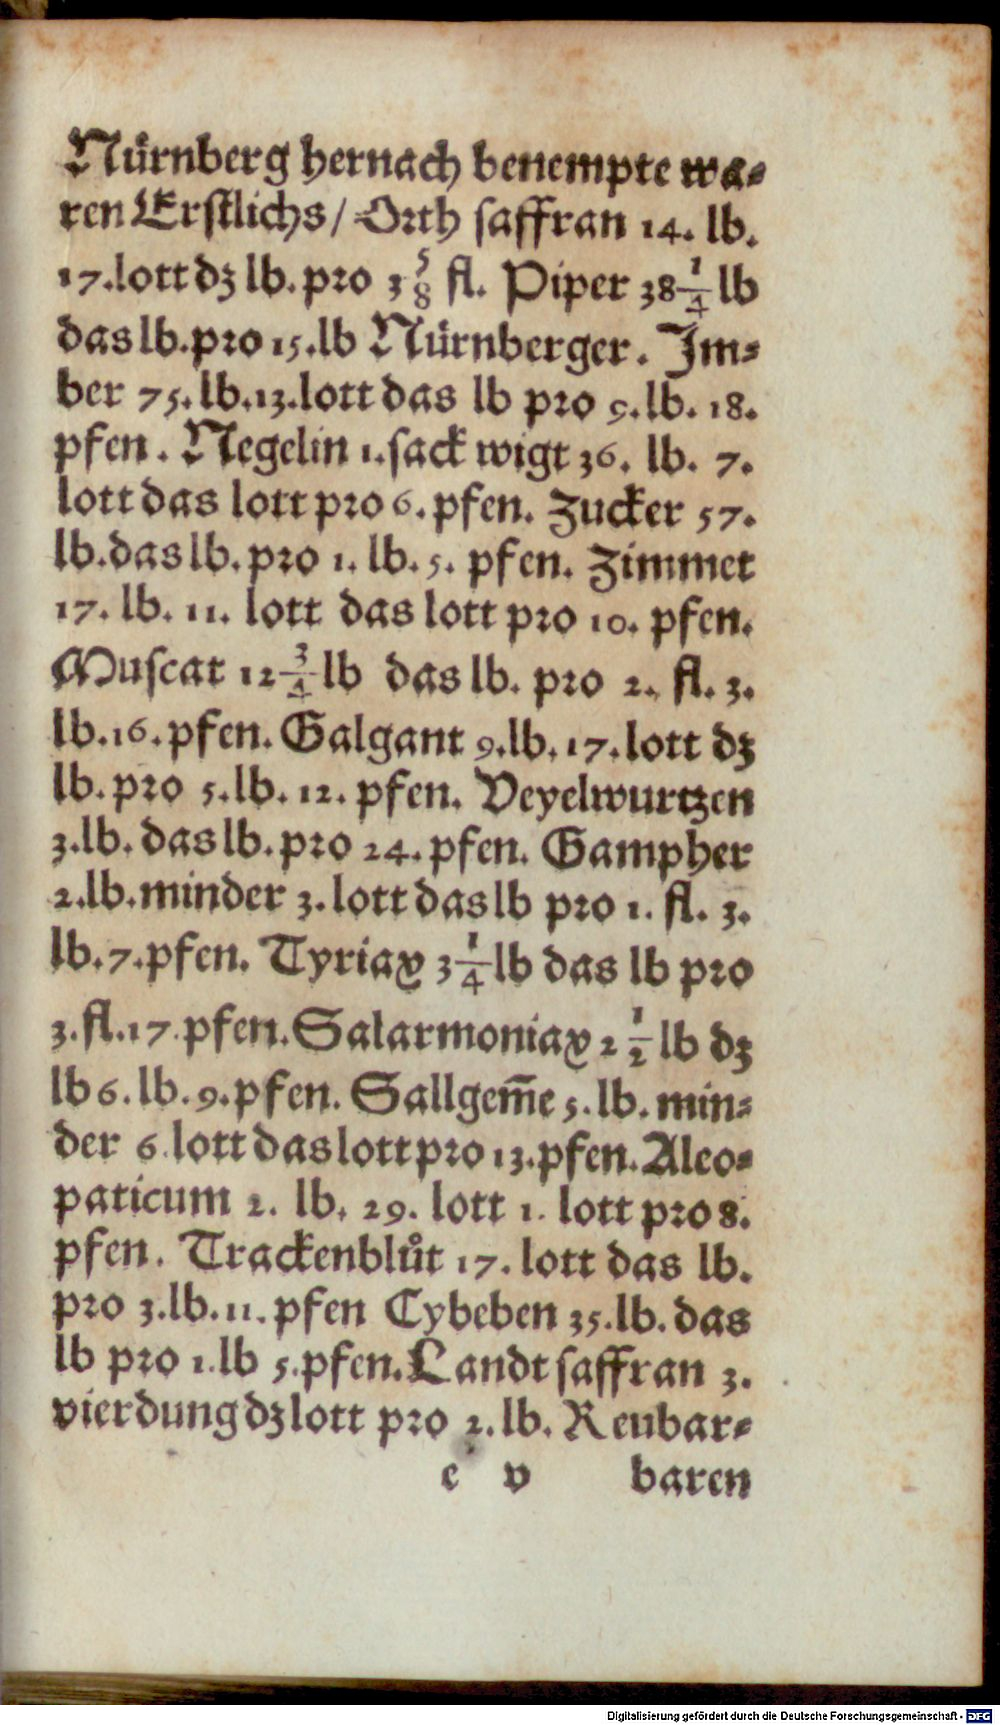 Nürnberg hernach benempte wa-
ren Erstlichs / Orth saffran 14. lb.
17. lott dz lb. pro 3 5/8 fl. Piper 38 1/4 lb
das lb. pro 15. lb Nürnberger. Im-
ber 75. lb. 13. lott das lb pro 9. lb. 18.
pfen. Negelin 1. sack wigt 36. lb. 7.
lott das lott pro 6. pfen. Zucker 57.
lb. das lb. pro 1. lb. 5. pfen. Zimmet
17. lb. 11. lott das lott pro 10. pfen.
Muscat 12 3/4 lb das lb. pro 2. fl. 3.
lb. 16. pfen. Galgant 9. lb. 17. lott dz
lb. pro 5. lb. 12. pfen. Veyelwurtzen
3. lb. das lb. pro 24. pfen. Gampher
2. lb. minder 3. lott das lb pro 1. fl. 3.
lb. 7. pfen. Tyriax 3 1/4 lb das lb pro
3. fl. 17. pfen. Salarmoniax 2 1/2 lb dz
lb 6. lb. 9. pfen. Sallgem̅e 5. lb. min-
der 6 lott das lott pro 13. pfen. Aleo-
paticum 2. lb. 29. lott 1. lott pro 8.
pfen. Trackenblůt 17. lott das lb.
pro 3. lb. 11. pfen Cybeben 35. lb. das
lb pro 1. lb 5. pfen. Landt saffran 3.
vierdung dz lott pro 2. lb. Reubar-
e v baren
Digitalisierung gefördert durch die Deutsche Forschungsgemeinschaft - DFG